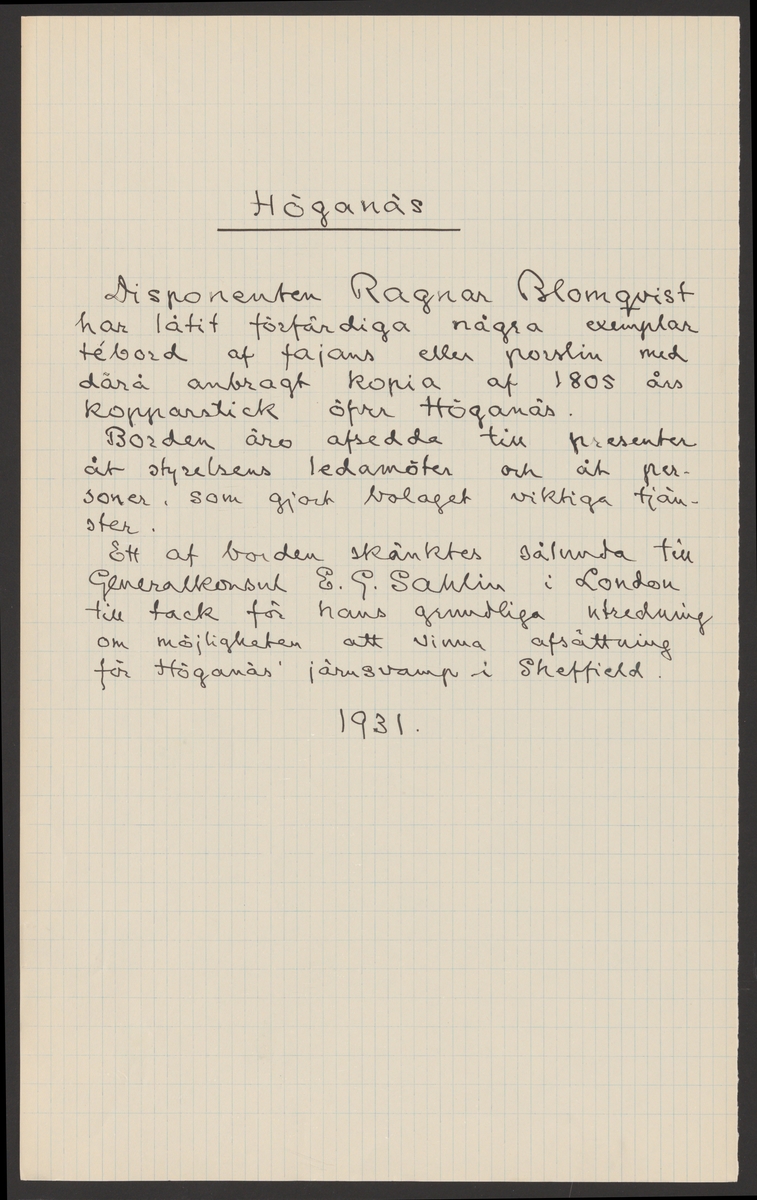 Höganäs
Disponenten Ragnar Blomqvist
har låtit förfärdiga några exemplar
tébord af fajans eller porslin med
därå anbragt kopia af 1805 års
kopparstick öfver Höganäs.
Borden äro afsedda till presenter
åt styrelsens ledamöter och åt per-
soner, som gjort bolaget viktiga tjän-
ster.
Ett af borden skänktes sålunda till
Generalkonsul E. G. Sahlin i London
till tack för hans grundliga utredning
om möjligheten att vinna afsättning
för Höganäs' järnsvamp i Sheffield.
1931.